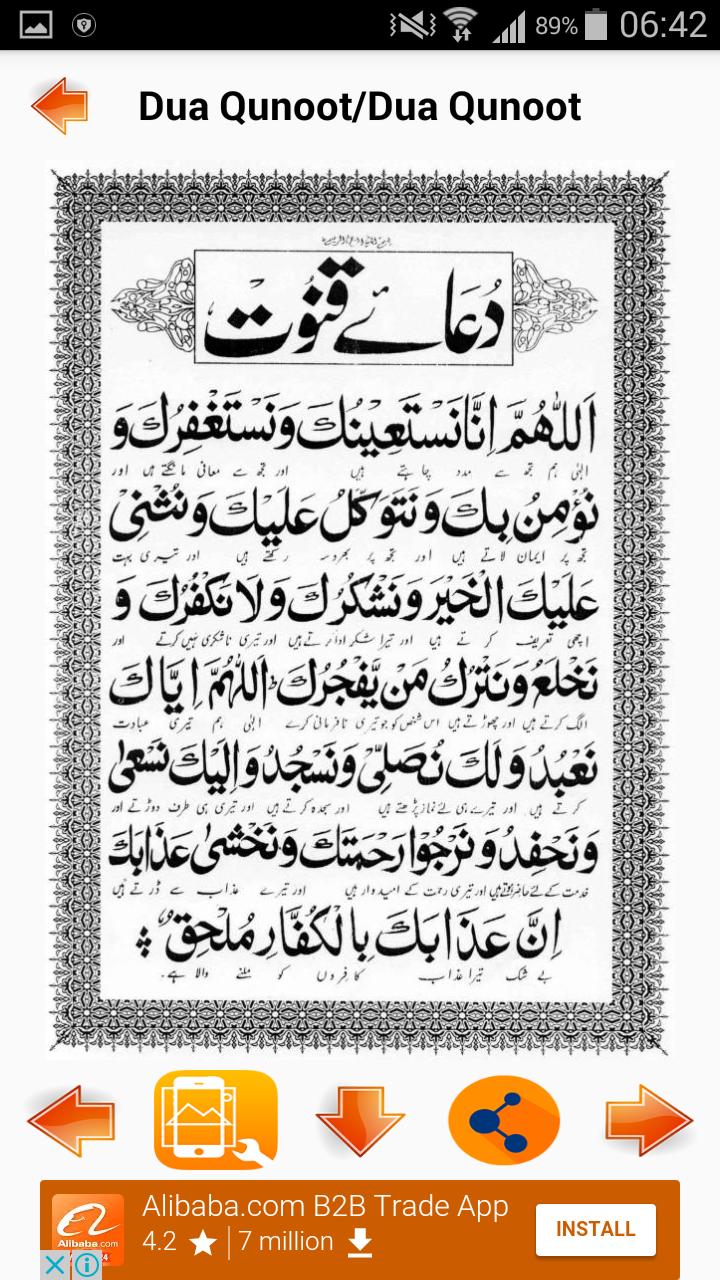 89% 06:42
Dua Qunoot/Dua Qunoot
دُعَائے قنُوت
اَللّٰهُمَّ اِنَّا نَسْتَعِينُكَ وَنَسْتَغْفِرُكَ وَ
الٰہی ہم تجھ سے مدد چاہتے ہیں اور تجھ سے معافی مانگتے ہیں اور
نُؤْمِنُ بِكَ وَنَتَوَكَّلُ عَلَيْكَ وَنُثْنِىْ
تجھ پر ایمان لاتے ہیں اور تجھ پر بھروسہ رکھتے ہیں اور تیری بہت
عَلَيْكَ الْخَيْرَ وَنَشْكُرُكَ وَلَا نَكْفُرُكَ وَ
اچھی تعریف کرتے ہیں اور تیرا شکر ادا کرتے ہیں اور تیری ناشکری نہیں کرتے اور
نَخْلَعُ وَنَتْرُكُ مَنْ يَّفْجُرُكَ ؕ اَللّٰهُمَّ اِيَّاكَ
الگ کرتے ہیں اور چھوڑتے ہیں اس شخص کو جو تیری نافرمانی کرے الٰہی ہم تیری عبادت
نَعْبُدُ وَلَكَ نُصَلِّىْ وَنَسْجُدُ وَاِلَيْكَ نَسْعٰى
کرتے ہیں اور تیرے ہی لئے نماز پڑھتے ہیں اور سجدہ کرتے ہیں اور تیری ہی طرف دوڑتے اور
وَنَحْفِدُ وَنَرْجُوْا رَحْمَتَكَ وَنَخْشٰى عَذَابَكَ
خدمت کے لئے حاضر ہوتے ہیں اور تیری رحمت کے امیدوار ہیں اور تیرے عذاب سے ڈرتے ہیں
اِنَّ عَذَابَكَ بِالْكُفَّارِ مُلْحِقٌ
بے شک تیرا عذاب کافروں کو ملنے والا ہے۔
Alibaba.com B2B Trade App
4.2 ★ | 7 million
INSTALL
Alibaba.com